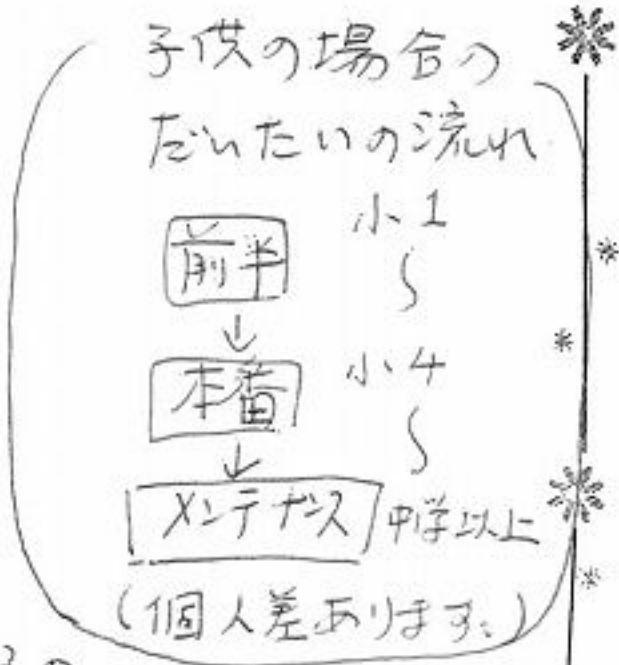 子供の場合の
だいたいの流れ
前半 小1
↓ 〜
本番 小4
↓ 〜
メンテナンス 中学以上
(個人差あります。)